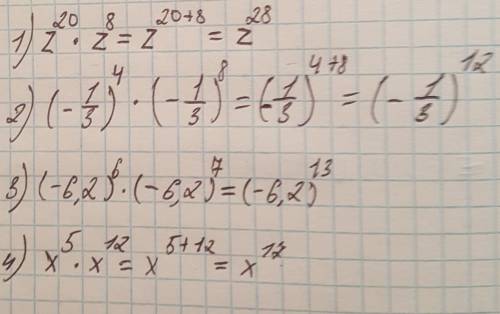 1) z^20 · z^8 = z^20+8 = z^28
2) (-1/3)^4 · (-1/3)^8 = (-1/3)^4+8 = (-1/3)^12
3) (-6,2)^6 · (-6,2)^7 = (-6,2)^13
4) x^5 · x^12 = x^5+12 = x^17